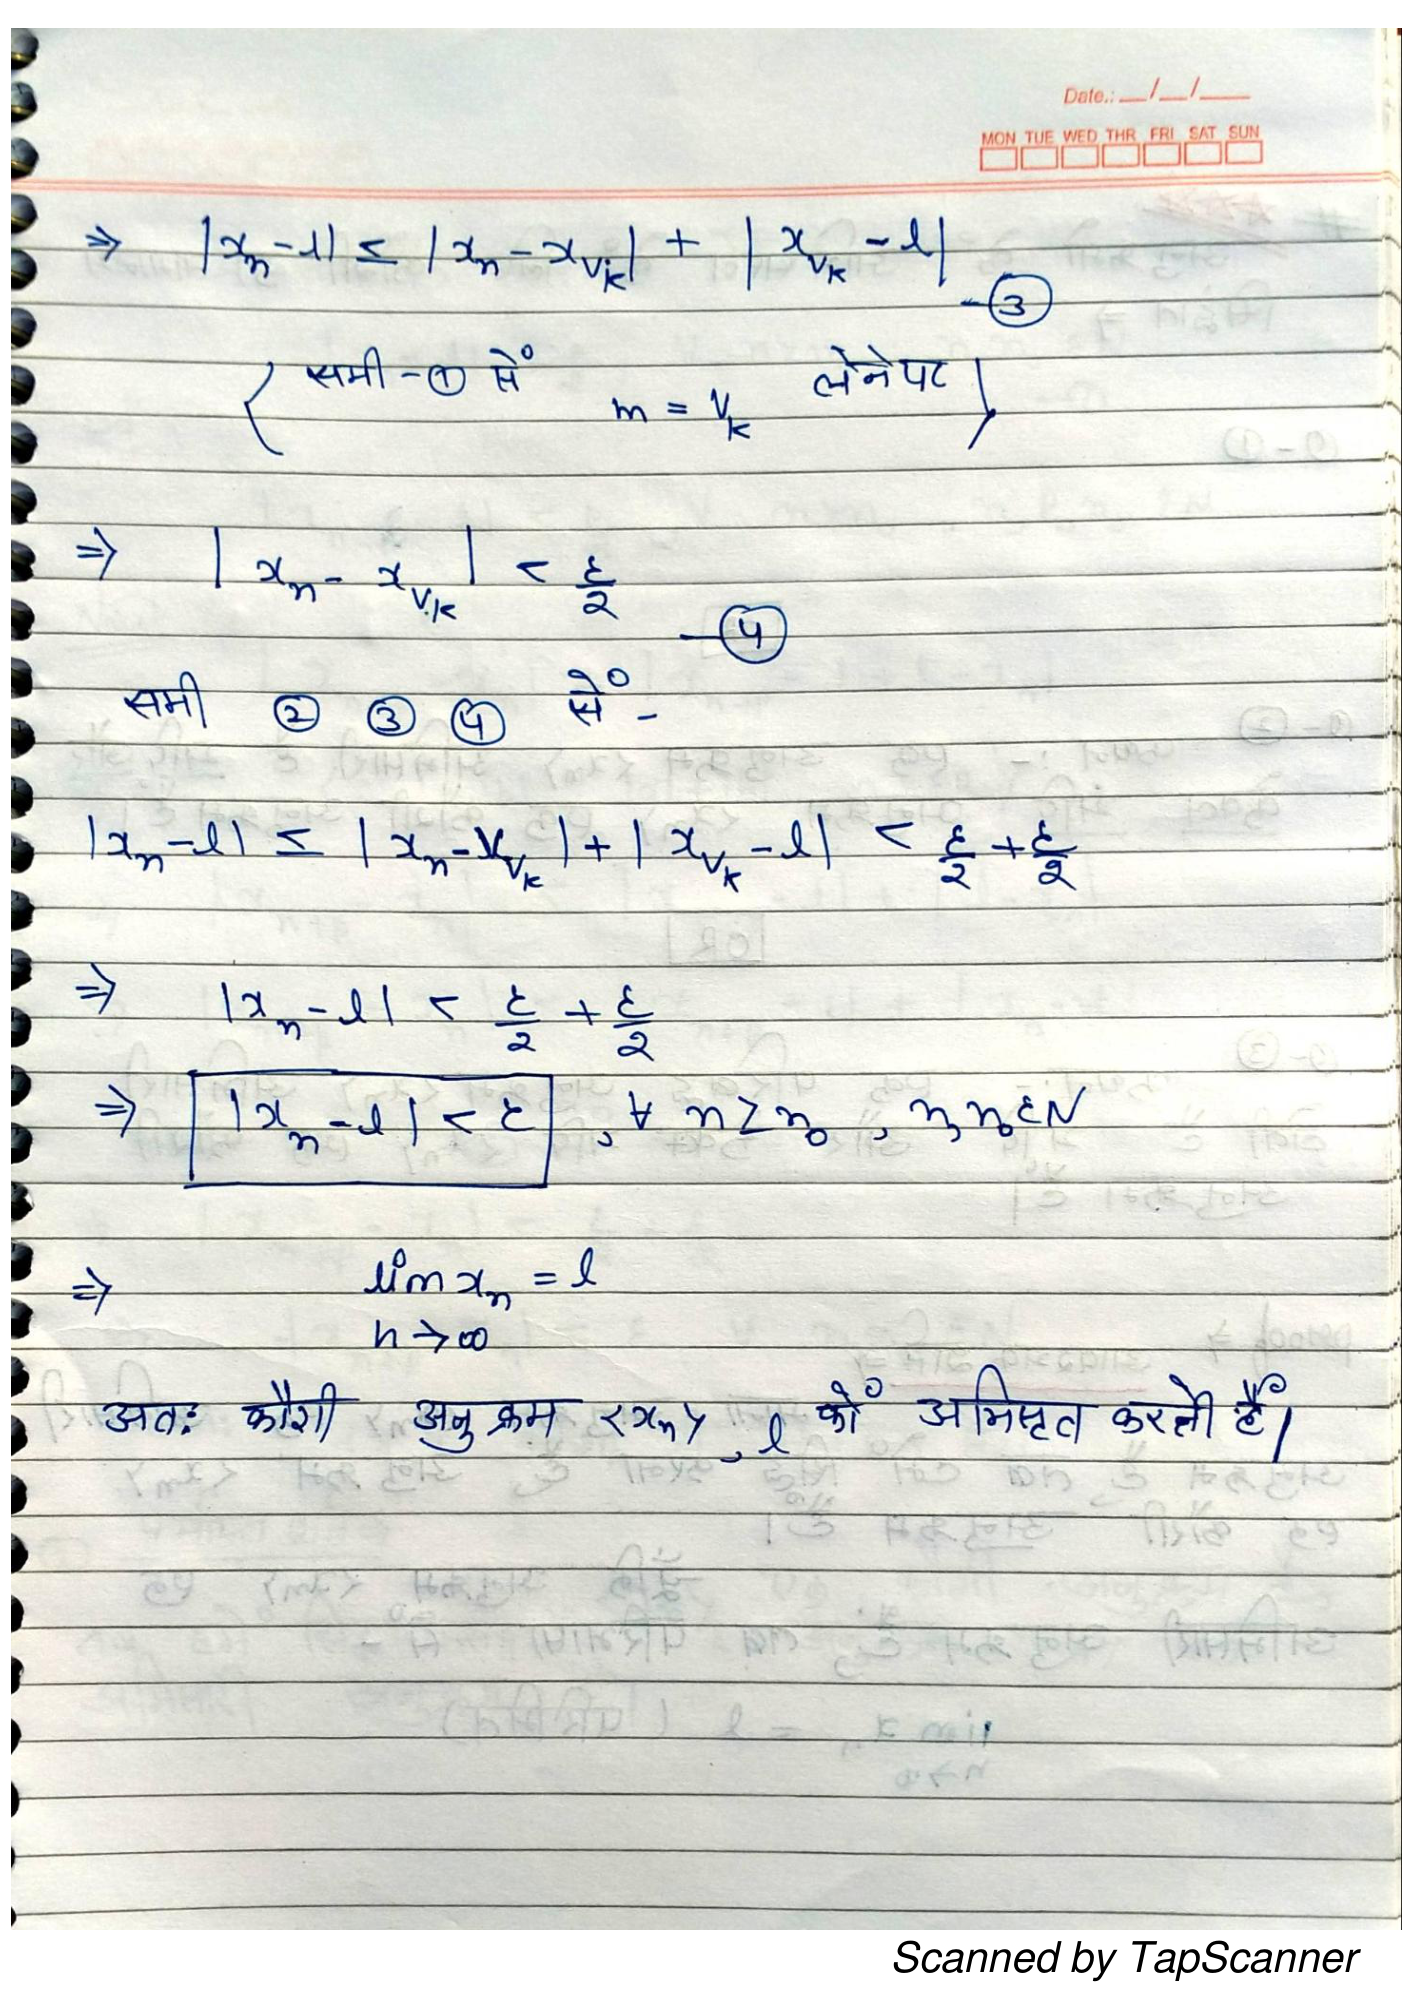 Date.: __/__/____
MON TUE WED THR FRI SAT SUN
⇒ |xₙ - l| ≤ |xₙ - x_{v_k}| + |x_{v_k} - l| -③
( समी - ① से m = v_k लेने पर )
⇒ |xₙ - x_{v_k}| < ε/2 -④
समी ② ③ ④ से -
|xₙ - l| ≤ |xₙ - x_{v_k}| + |x_{v_k} - l| < ε/2 + ε/2
⇒ |xₙ - l| < ε/2 + ε/2
⇒ |xₙ - l| < ε , ∀ n ≥ n₀ , n, n₀ ∈ N
⇒ lim xₙ = l
n → ∞
अतः कौशी अनुक्रम <xₙ>, l को अभिसृत करती हैं।
Scanned by TapScanner